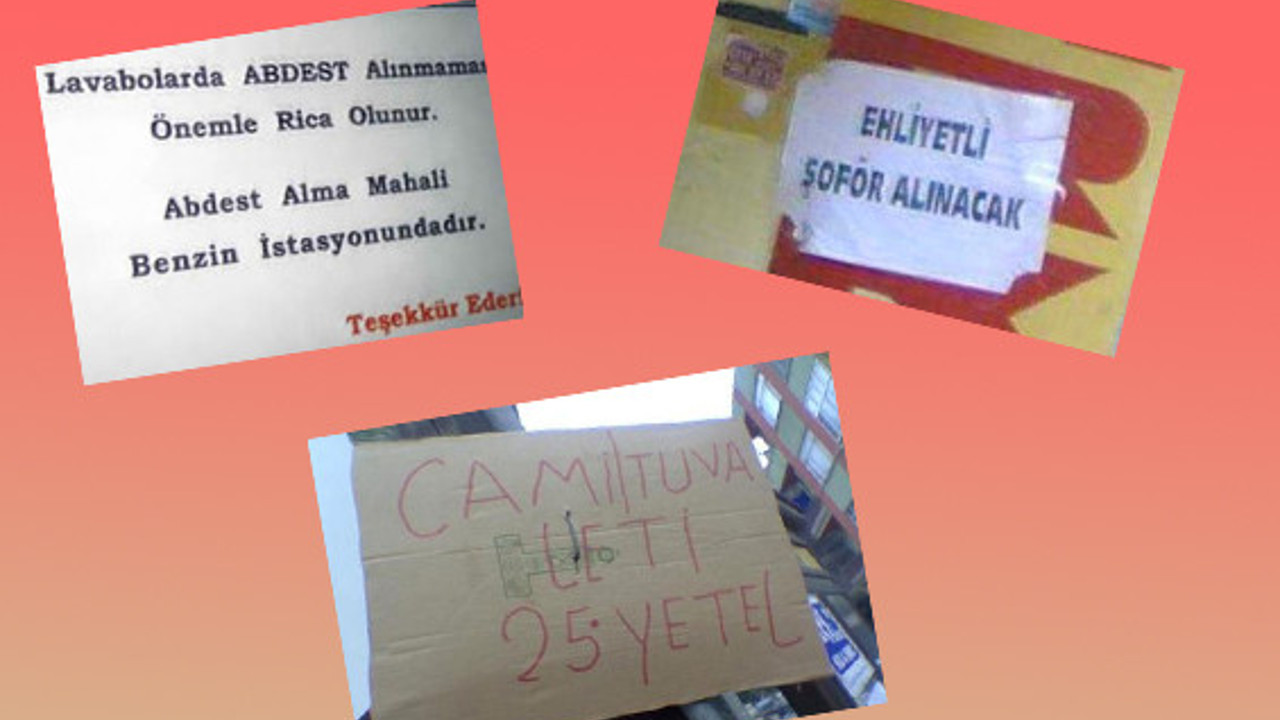 Lavabolarda ABDEST Alınmaması
Önemle Rica Olunur.
Abdest Alma Mahali
Benzin İstasyonundadır.
Teşekkür Ederi
EHLİYETLİ
ŞOFÖR ALINACAK
CAMİ TUVA
LETİ
25 YETEL